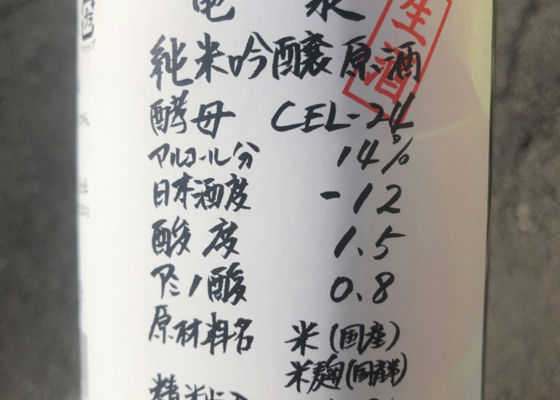 亀泉
生酒
純米吟醸原酒
酵母 CEL-24
アルコール分 14%
日本酒度 -12
酸度 1.5
アミノ酸 0.8
原材料名 米(国産)
米麹(国産米)